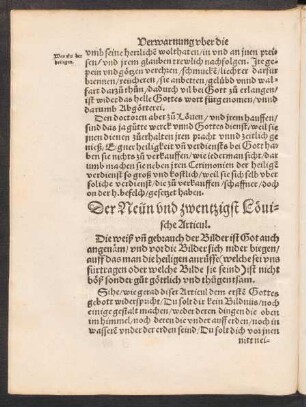 Verwarnung vber die
Wer also der
heiligen.
vmb seine herrliche wolthaten/in vnd an jnen preis
sen/vnd jrem glauben trewlich nachfolgen. Jr ge-
pein vnd götzen verehren/schmucken/liechter darfur
brennen/reuchern/sie anbetten/gelübd vnnd wal-
fart darzů thůn/dadurch vil bei Got zů erlangen/
ist wider das helle Gottes wort für genomen/vnnd
darumb Abgötterei.
Den doctoren aber zů Löuen/vnd jrem hauffen/
sind das ja gůte werck vnnd Gottes dienst/weil sie
jnen dienen zůerhalten jren pracht vnnd zeitlich ge
nieß/Eigner heiligkeit vñ verdiensts bey Gott ha-
ben sie nichts zů verkauffen/wie jederman sicht/dar
umb machen sie neben jren Ceremonien der heiligē
verdienst so groß vnd köstlich/weil sie sich selb vber
soliche verdienst/die zů verkauffen/schaffner/doch
on der h. befelch/gesetzet haben.
Der Neün vnd zwentzigst Löui-
sche Articul.
Die weiß vñ gebrauch der Bilder ist Got auch
angenäm/vnd vor die Bilder sich nider biegen/
auff das man die heiligen anrůffe/welche sei vns
fürtragen oder welche Bilde sie seind/ist nicht
böß sonder gůt göttlich vnd thůgentsam.
Sihe/wie gerad diser Articul dem erstē Gottes
gebott widerspricht/Du solt dir kein Bildnüs/noch
einige gestalt machen/weder deren dingen die oben
im himmel/noch deren die vnder auff erden/noch in
wassern vnder der erden seind/Du solt dich vor jnen
nitt nei-